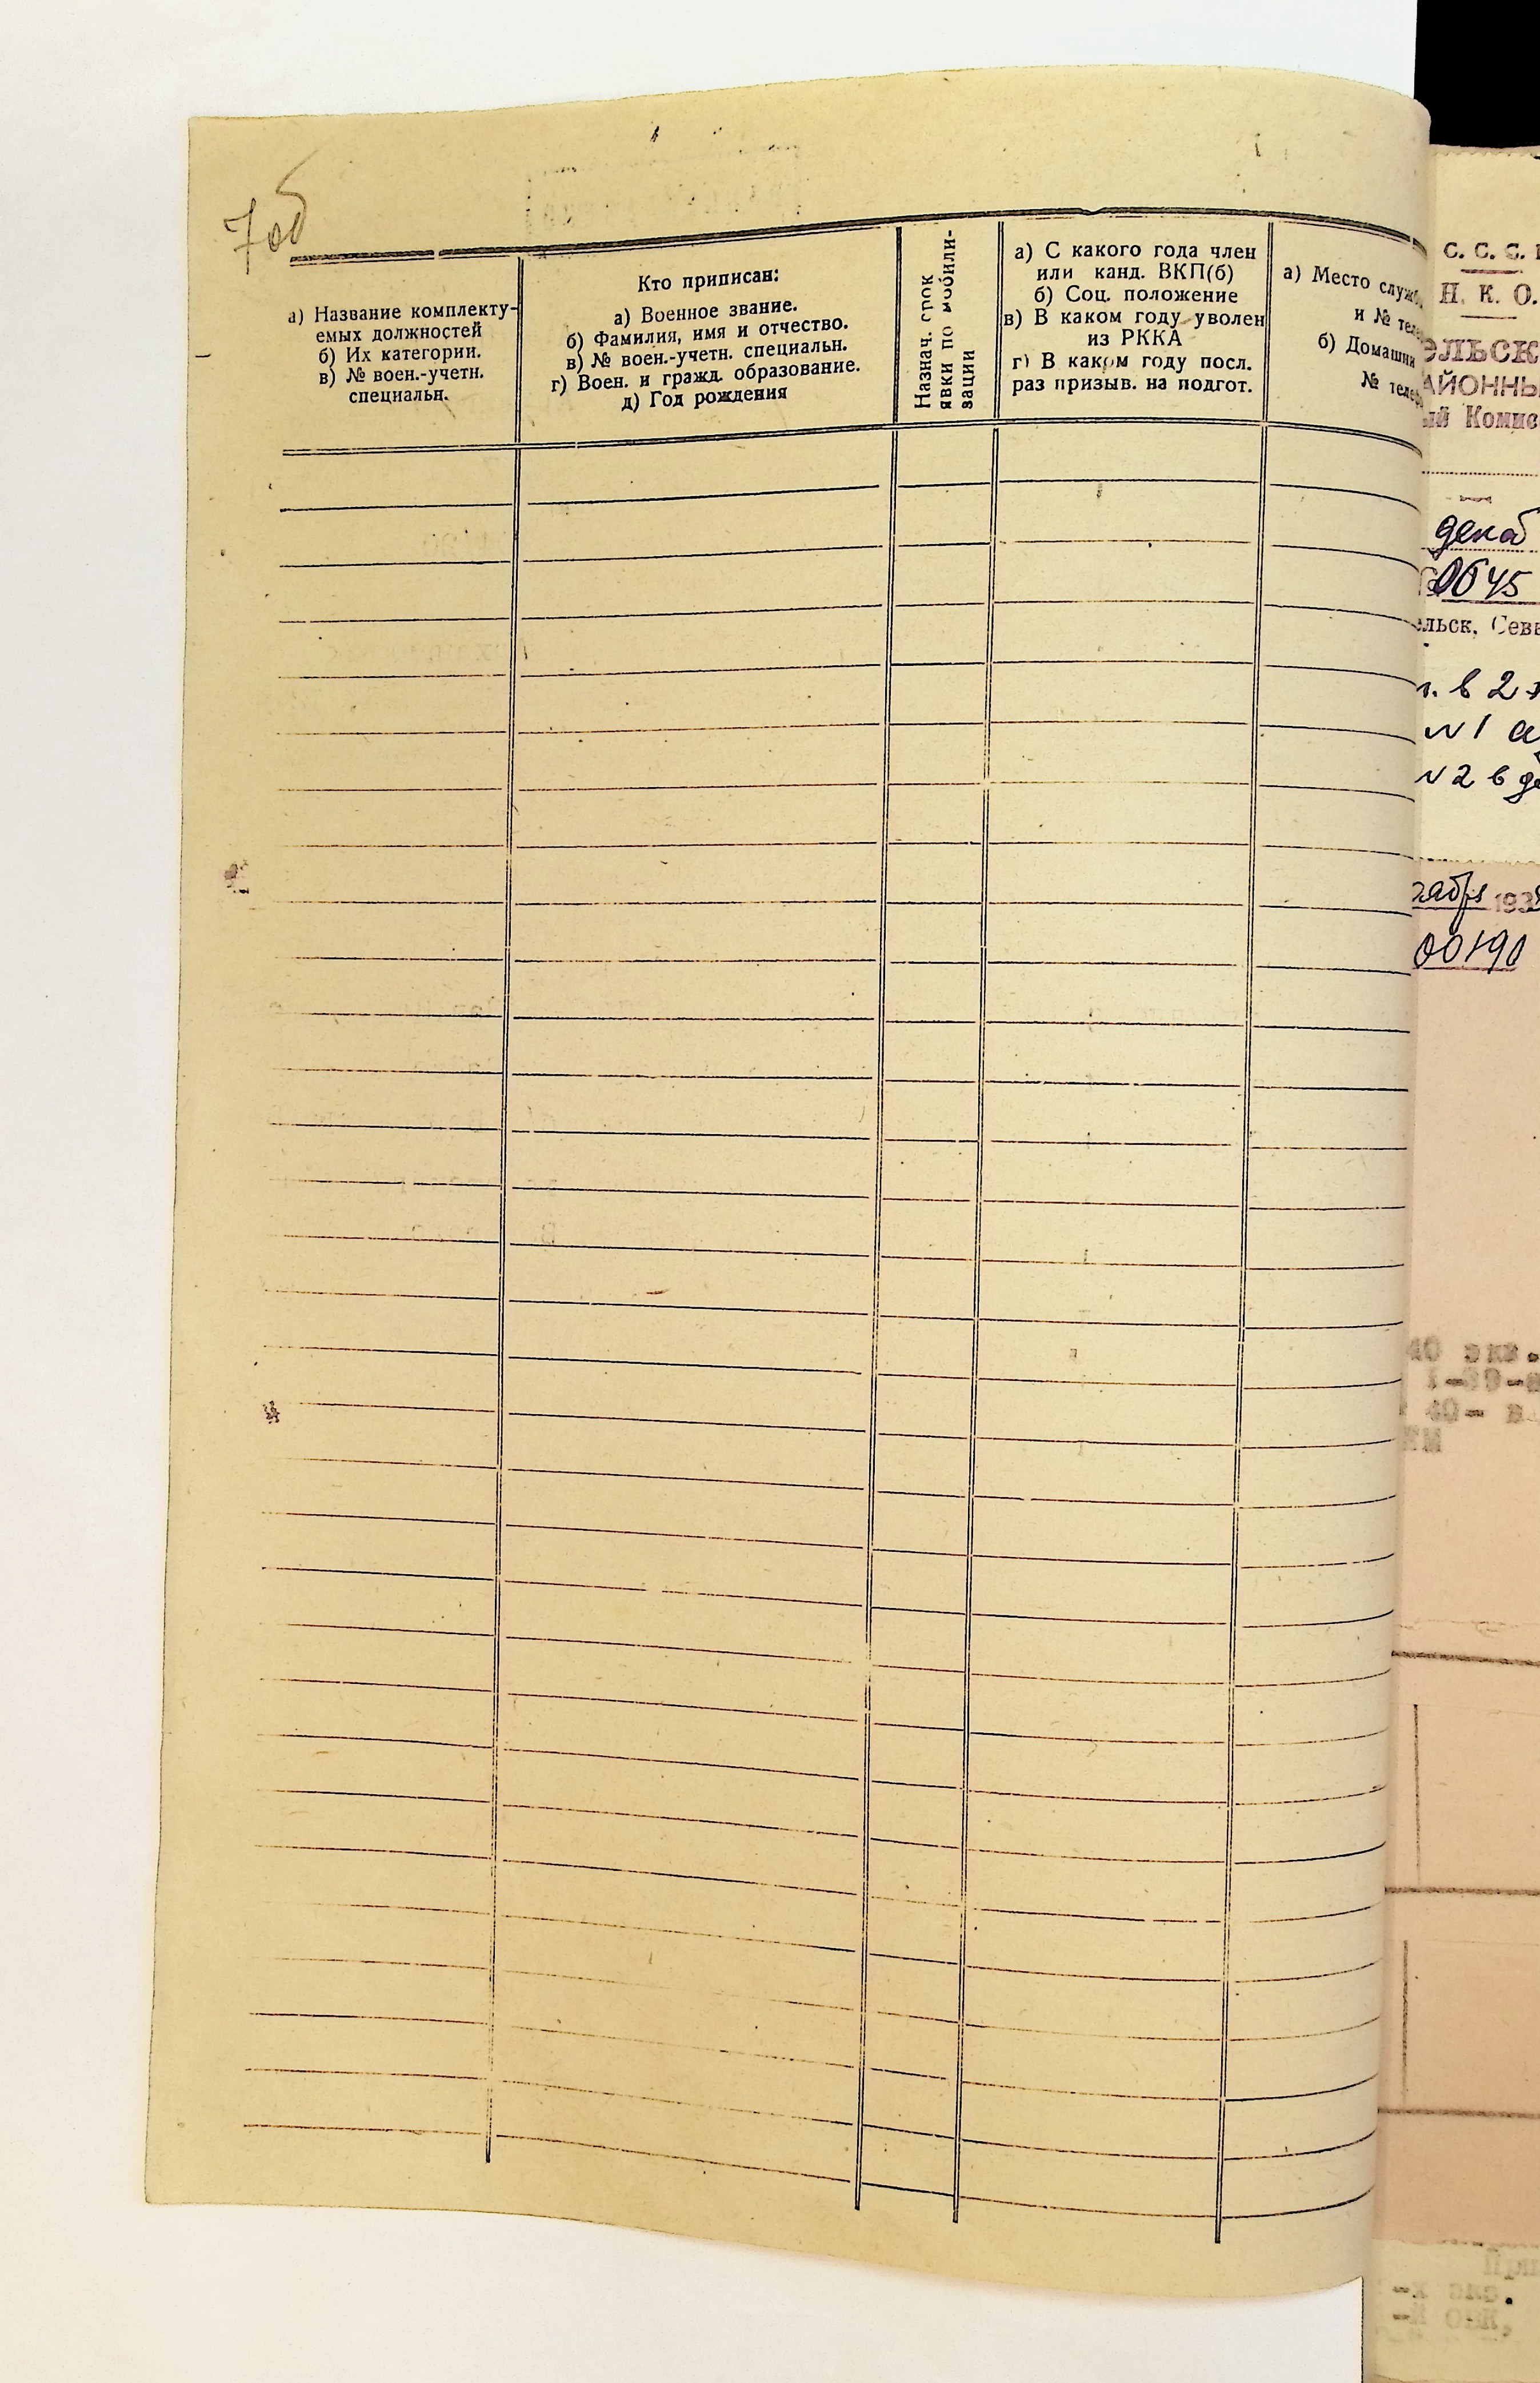 7об
а) Название комплекту-
емых должностей
б) Их категории.
в) № воен.-учетн.
специальн.
Кто приписан:
а) Военное звание.
б) Фамилия, имя и отчество.
в) № воен.-учетн. специальн.
г) Воен. и гражд. образование.
д) Год рождения
Назнач. срок
явки по мобили-
зации
а) С какого года член
или канд. ВКП(б)
б) Соц. положение
в) В каком году уволен
из РККА
г) В каком году посл.
раз призыв. на подгот.
а) Место служб
и № теле
б) Домашни
№ теле
С. С. С.
Н. К. О.
ельск
айонны
ый Комис
декаб
0645
ельск, Сев
в 2 э
№ 1
№ 2 в де
кабря 193
00190
40 экз.